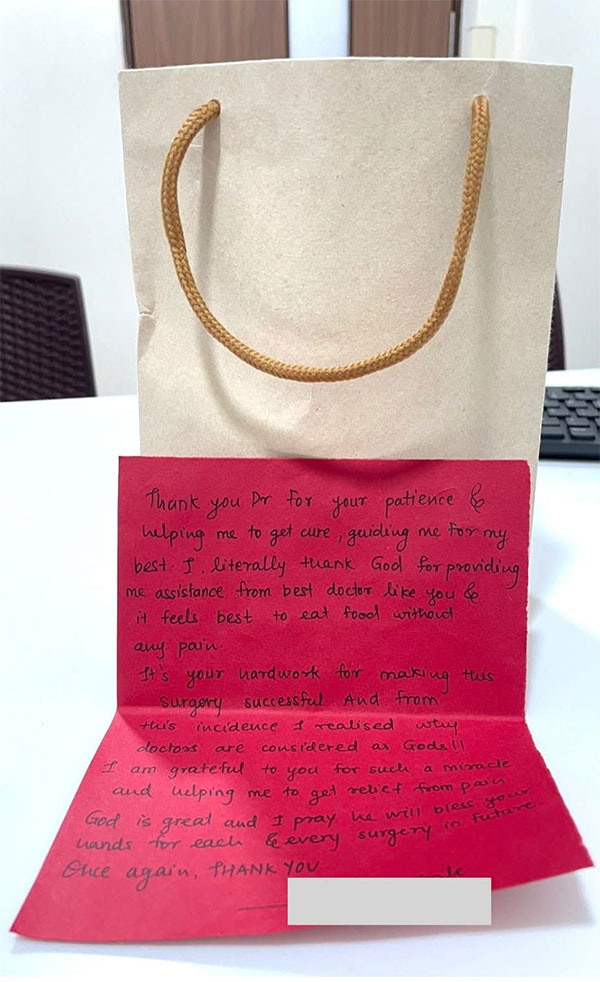 Thank you Dr for your patience &
helping me to get cure, guiding me for my
best. I, literally thank God for providing
me assistance from best doctor like you &
it feels best to eat food without
any pain.
It's your hardwork for making this
surgery successful And from
this incidence I realised why
doctors are considered as Gods!!
I am grateful to you for such a miracle
and helping me to get relief from pain
God is great and I pray he will bless your
hands for each & every surgery in future.
Once again, THANK YOU.